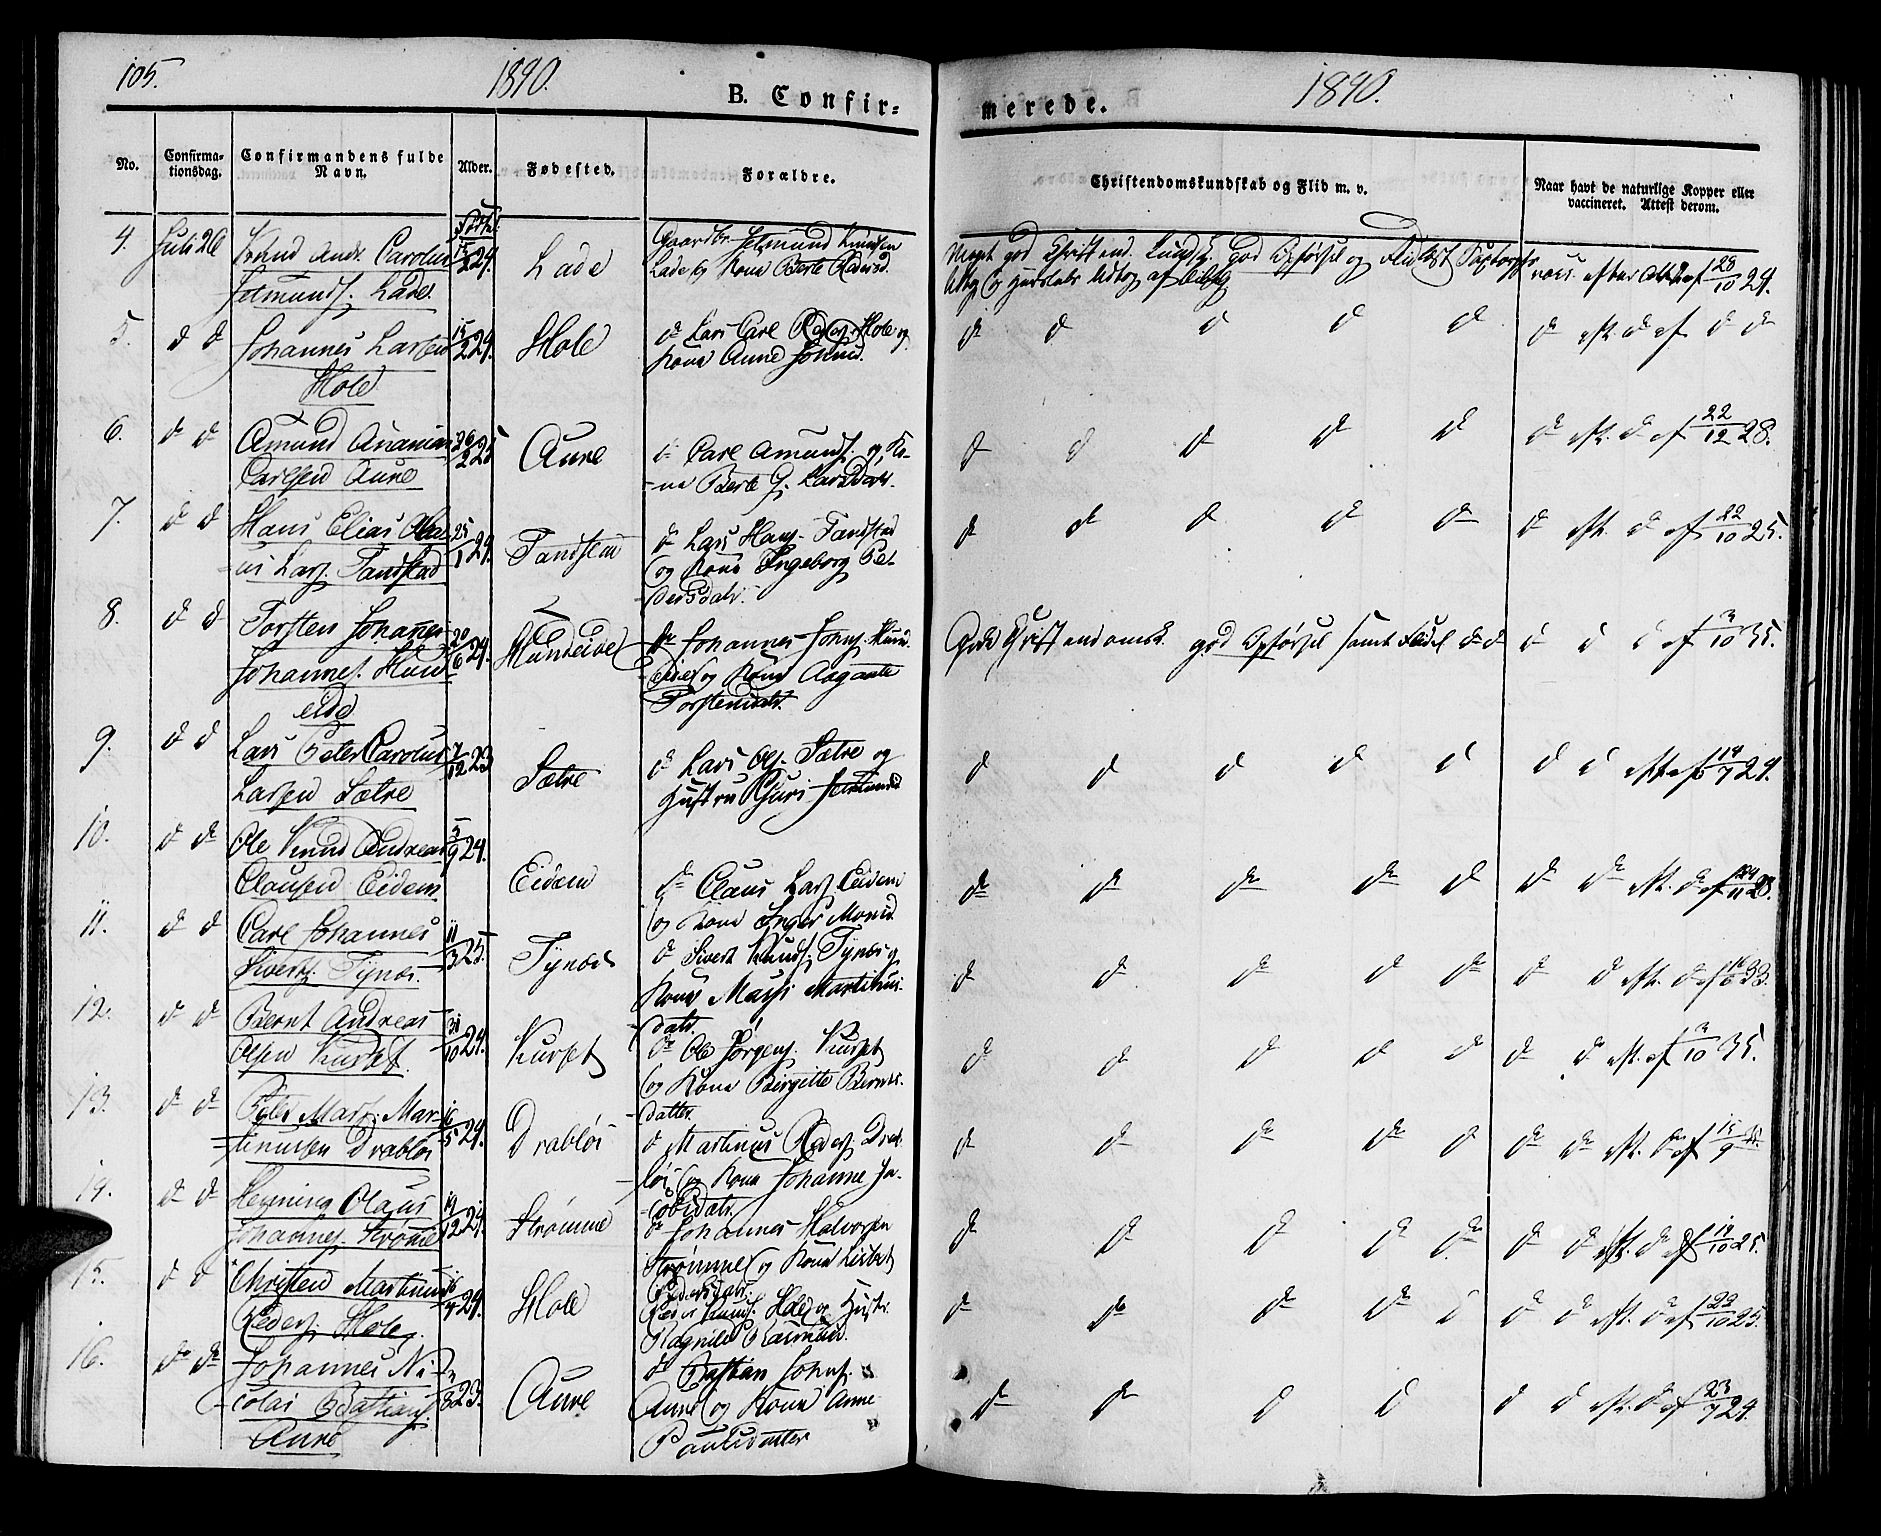 105.
1840.
B. Confir=
merede.
1840.
No.
Confirma-
tionsdag.
Confirmandens fulde
Navn.
Alder.
Fødested.
Forældre.
Christendomskundskab og Flid m. v.
Naar havt de naturlige Kopper eller
vaccineret. Attest derom.
4. Juli 26 Knud Andr. Carolus
Jetmunds. Lade
24.
Lade
Gaardbr. Jetmund Knudsen
Lade og Kone Berte Pedersd.
Meget god Christend. Kundsk. god Opførsel og Flid
vacc. efter Att. af 28/10 24.
5. d d Johannes Larsen
Hole
15/2 24.
Hole
d Lars Carl Hole og
Kone Anne Johnsd.
d d d d d d eft. d af d d
6. d d Amund Ananias
Carlsen Aure
26/2 25
Aure
d Carl Amunds. og Ko-
-ne Berte G. Larsdatr.
d d d d d d eft. d af 22/12 28.
7. d d Hans Elias
Lars. Tandstad
25/1 24.
Tandstad
d Lars Hans. Tandstad
og Kone Ingeborg Pe-
-dersdatr.
d d d d d d eft. d af 22/10 25.
8. d d Torsten Johannes
Johannes. Hund-
eide
20/6 24.
Hundeidet
d Johannes Johns. Hund-
eidet og Kone Aagaate
Torstensdatr.
God Christendomsk. god Opførsel samt Flid d d d d d af 3/10 35.
9. d d Lars Peter Carolus
Larsen Sætre
7/12 23
Sætre
d Lars Ols. Sætre og
Hustru Guri Jetmunds
d d d d d d d eft. af 14/7 24.
10. d d Ole Knud Andreas
Clausen Eidem
5/9 24.
Eidem
d Claus Lars. Eidem
og Kone Inger Monsd.
d d d d d d d eft. d af
11. d d Carl Johannes
Siverts. Tynes
11/3 25.
Tynes
d Sivert Knuds. Tynes og
Kone Massi Martinus-
datr.
d d d d d d d eft. d af 33.
12. d d Bernt Andreas
Olsen Kurset
31/10 24.
Kurset
d Ole Jørgens. Kurset
og Kone Birgitte Bernts-
datter.
d d d d d d d eft. af 3/10 35.
13. d d Peter Mart. Mar-
tinussen Drabløs
16/5 24.
Drabløs
d Martinus Peders. Drab-
løs og Kone Johanne Ja-
cobsdatr.
d d d d d d d eft. d af 15/9
14. d d Henning Olaus
Johannes. Strømme
19/12 24.
Strømme
d Johannes Halvorsen
Strømme og Kone Lisbet
Pedersdatr.
d d d d d d d eft. d af 19/10 25.
15. d d Christen Martinus
Peders. Hole
16/4 24.
Hole
Peder Knuds. Hole og Hustr.
Ragnild Rasmusd.
d d d d d d d eft. d af 22/10 25.
16. d d Johannes Ni-
colai Bastians.
Aure
23.
Aure
d Bastian Johns.
Aure og Kone Anne
Paulsdatter
d d d d d d eft. d af 23/7 24.